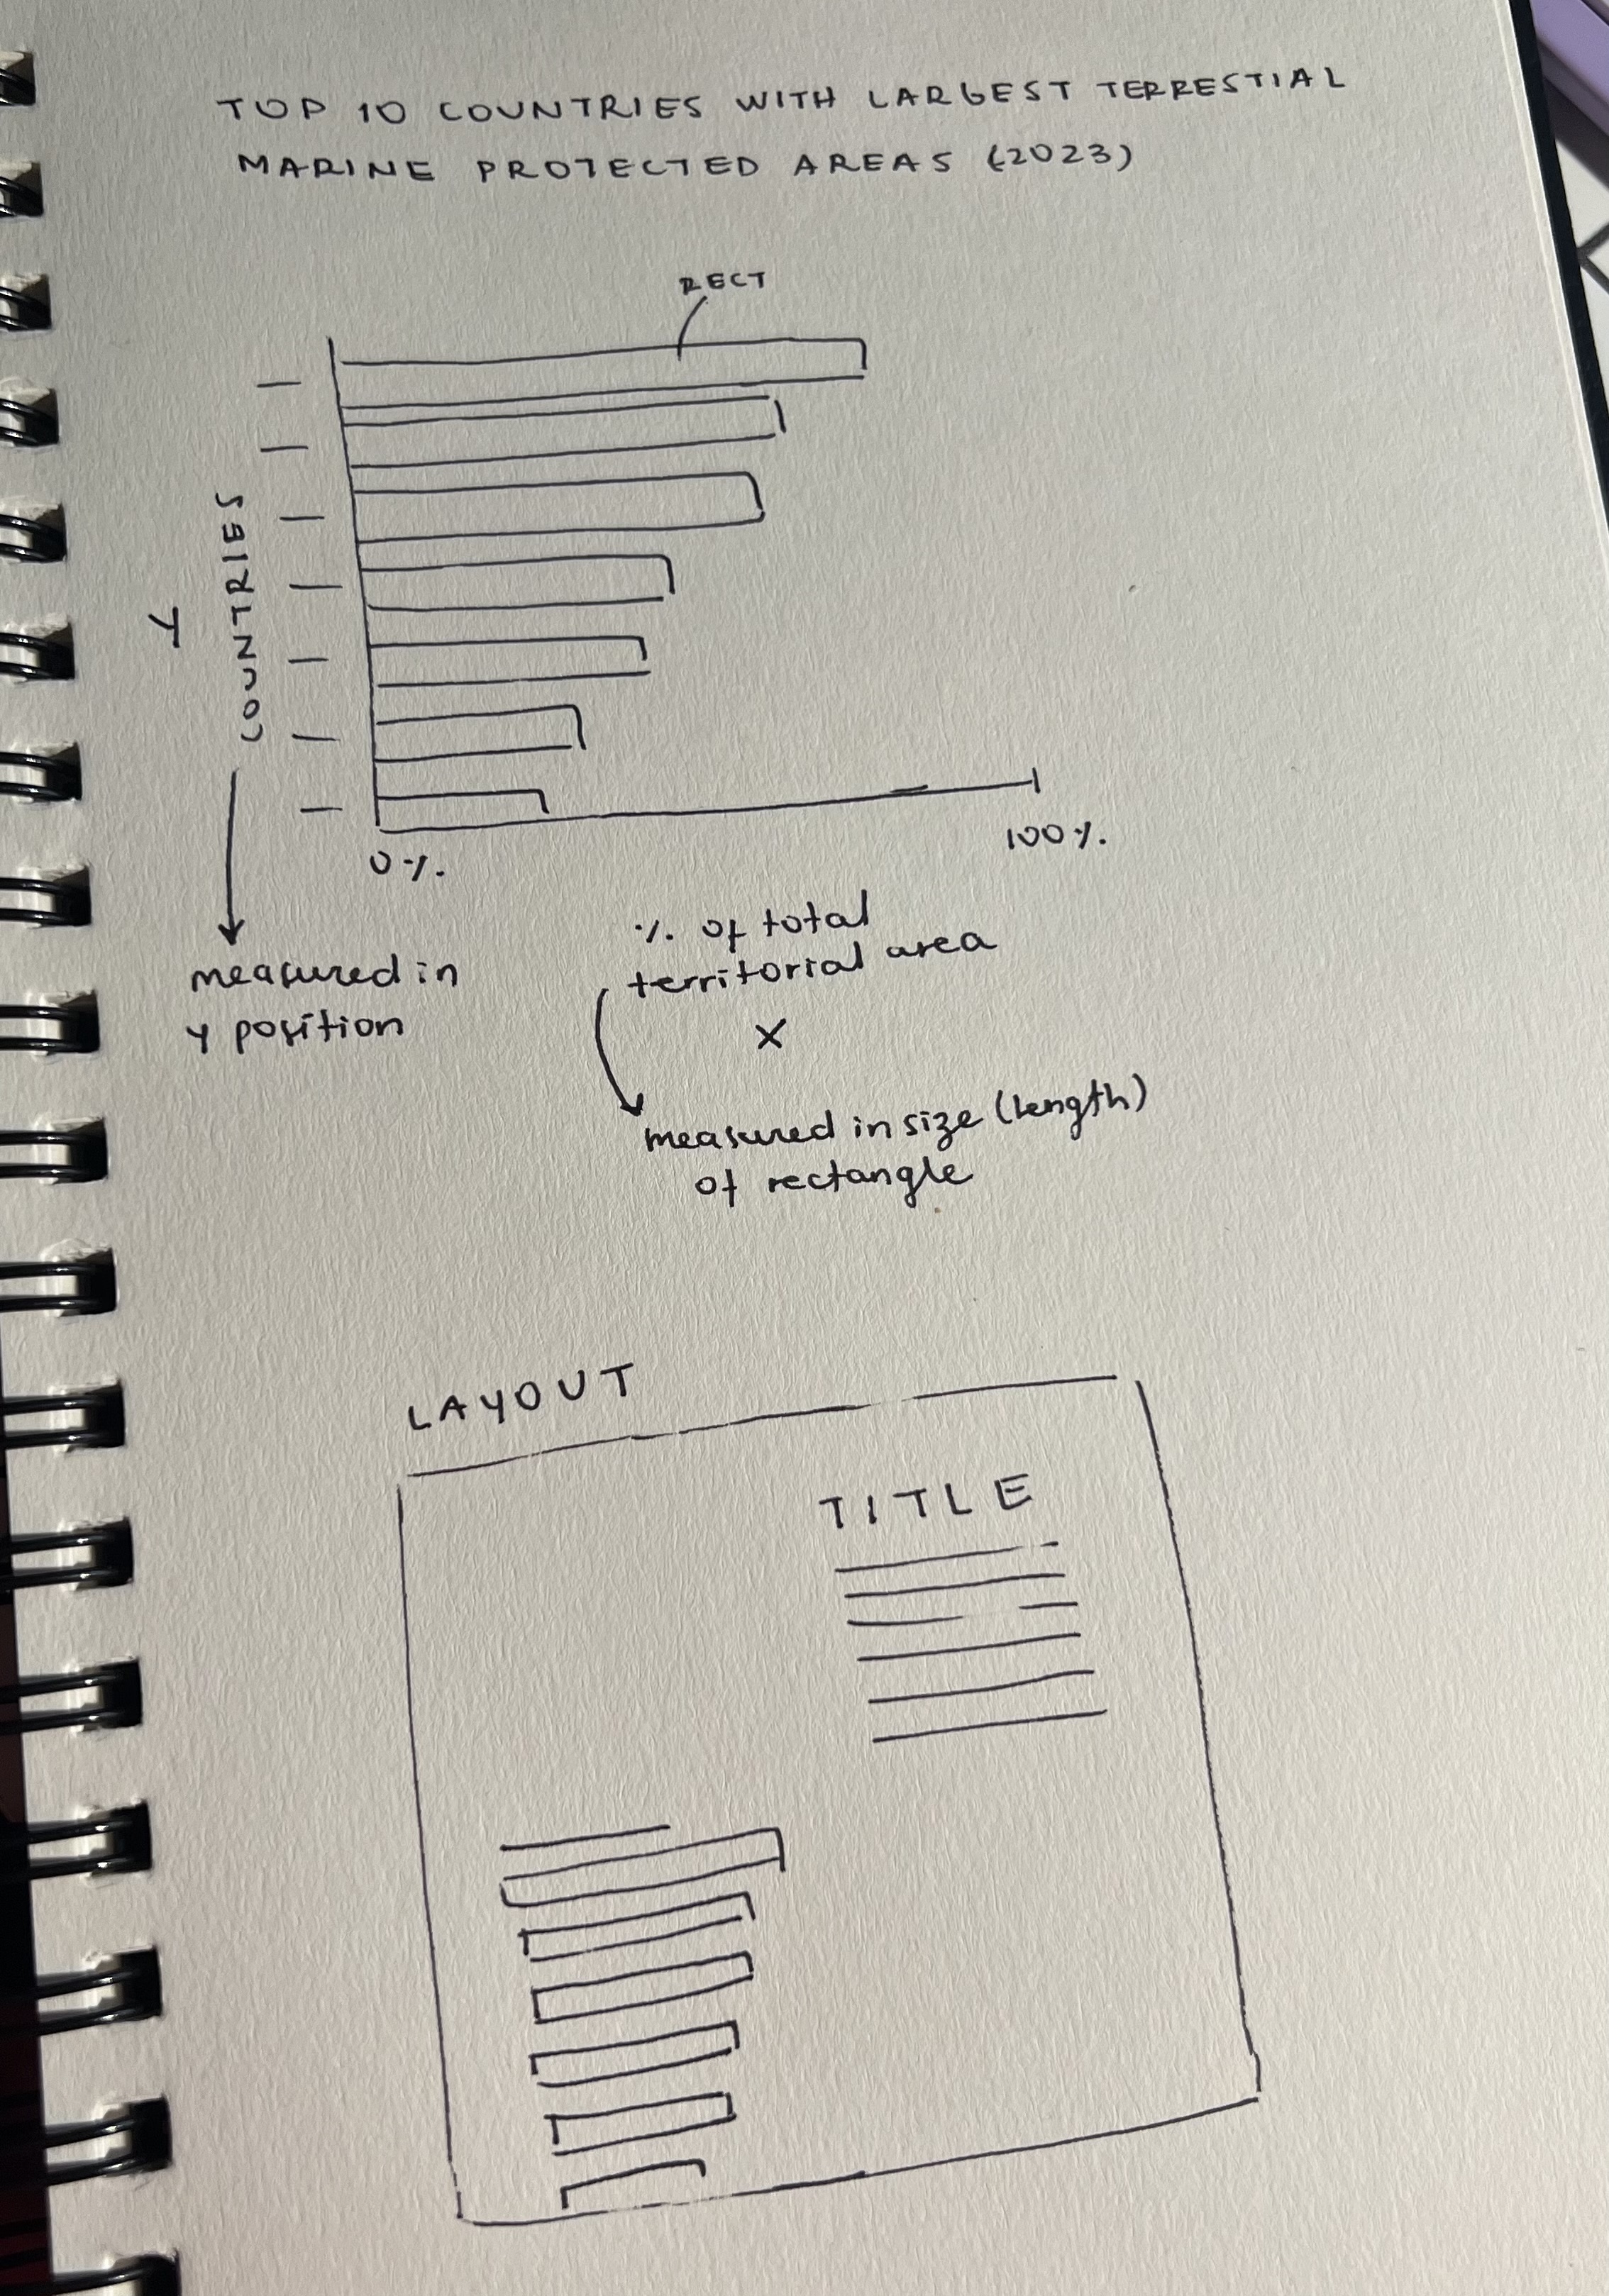 TOP 10 COUNTRIES WITH LARGEST TERRESTIAL
MARINE PROTECTED AREAS (2023)
RECT
Y
COUNTRIES
0%.
100%.
measured in
y position
%. of total
territorial area
X
measured in size (length)
of rectangle
LAYOUT
TITLE